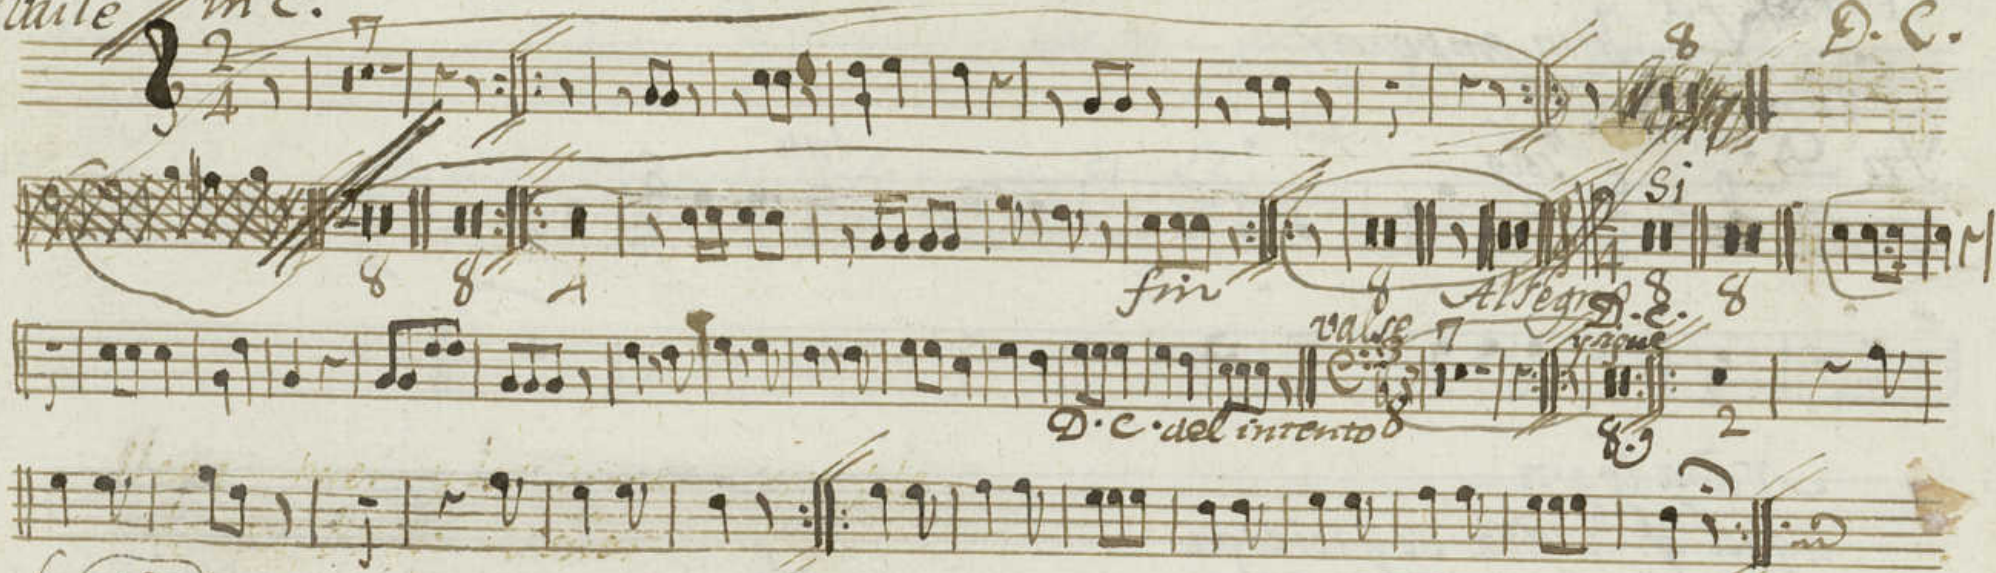 in C.
2 4 7 8 D. C.
Si
8 8 4 fin 8 Allegro 8 8
valse 7 D. C.
D. C. del intento 8 8. 2